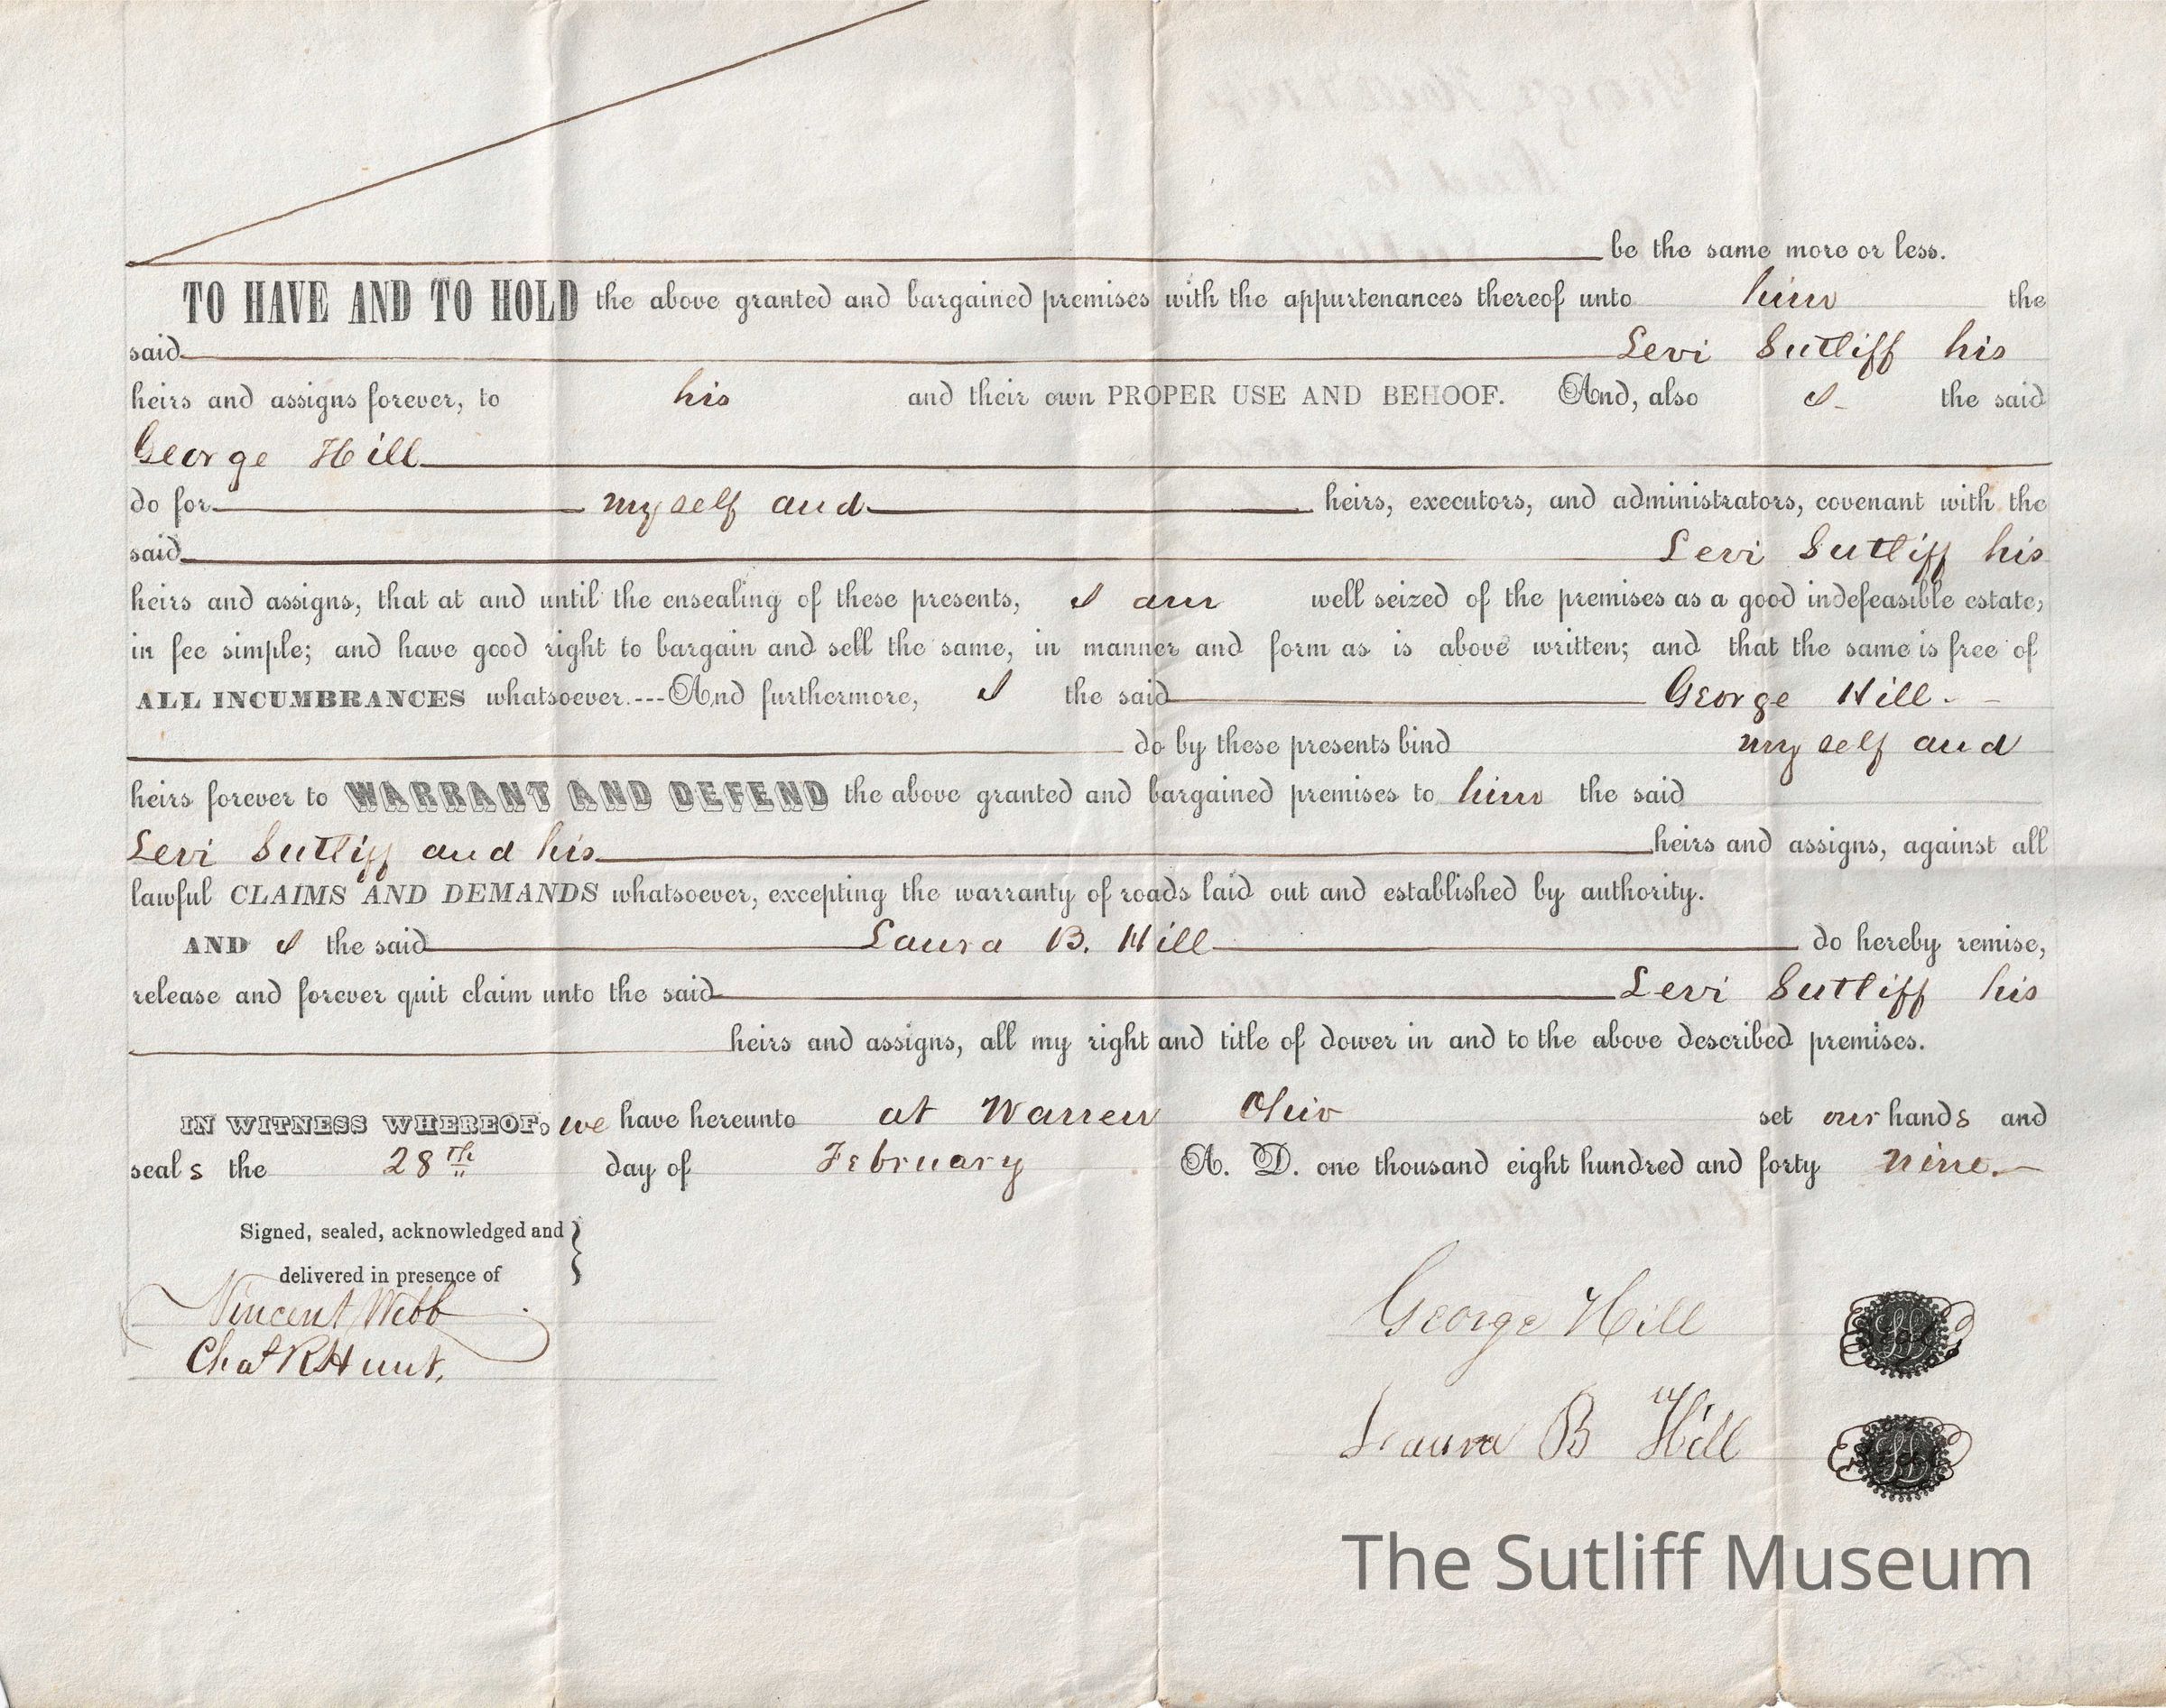 be the same more or less.
TO HAVE AND TO HOLD the above granted and bargained premises with the appurtenances thereof unto him the
said Levi Sutliff his
heirs and assigns forever, to his and their own PROPER USE AND BEHOOF. And, also I the said
George Hill
do for my self and heirs, executors, and administrators, covenant with the
said Levi Sutliff his
heirs and assigns, that at and until the ensealing of these presents, I am well seized of the premises as a good indefeasible estate,
in fee simple; and have good right to bargain and sell the same, in manner and form as is above written; and that the same is free of
ALL INCUMBRANCES whatsoever.---And furthermore, I the said George Hill
do by these presents bind my self and
heirs forever to WARRANT AND DEFEND the above granted and bargained premises to him the said
Levi Sutliff and his heirs and assigns, against all
lawful CLAIMS AND DEMANDS whatsoever, excepting the warranty of roads laid out and established by authority.
AND I the said Laura B. Hill do hereby remise,
release and forever quit claim unto the said Levi Sutliff his
heirs and assigns, all my right and title of dower in and to the above described premises.
IN WITNESS WHEREOF, we have hereunto at Warren Ohio set our hands and
seals the 28th day of February A. D. one thousand eight hundred and forty nine.
Signed, sealed, acknowledged and
delivered in presence of
Vincent Webb
Chas R Hunt.
George Hill
Laura B Hill
The Sutliff Museum